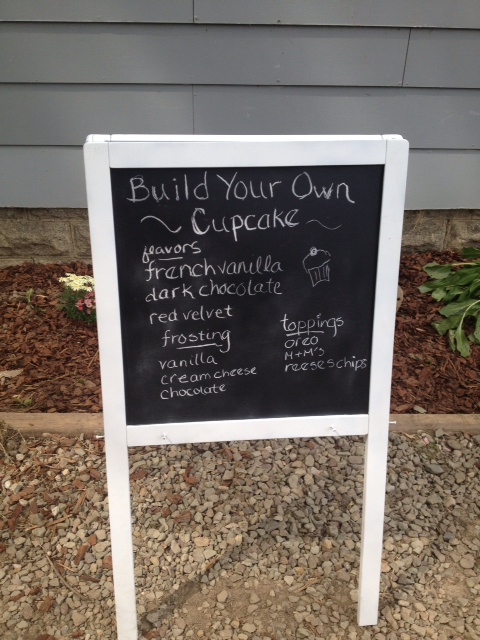 Build Your Own
~ Cupcake ~
flavors
french vanilla
dark chocolate
red velvet
frosting
vanilla
cream cheese
chocolate
toppings
oreo
M+M's
reeses chips